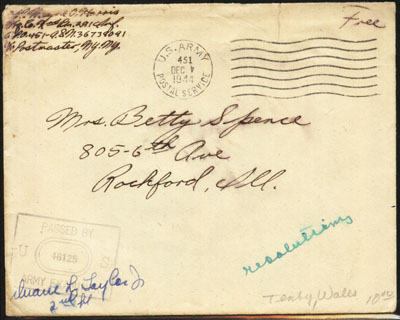 Harris
A.P.O. 451 - A.S.N. 36739091
% Postmaster, N.Y. N.Y.
Free
U.S. ARMY
451
DEC
1944
POSTAL SERVICE
Mrs. Betty Spence
805-6th Ave
Rockford, Ill.
PASSED BY
U
46125
ARMY
Duane L. Taylor Jr
2nd Lt
resolutions
Tenby, Wales
10.00